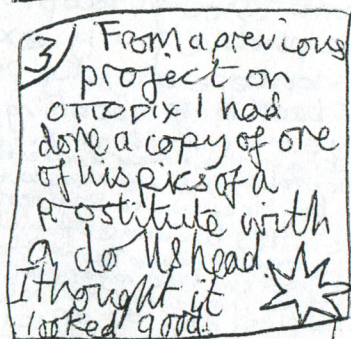 3 From a previous
project on
OTTO DIX I had
done a copy of one
of his pics of a
prostitute with
a dolls head.
I thought it
looked good.